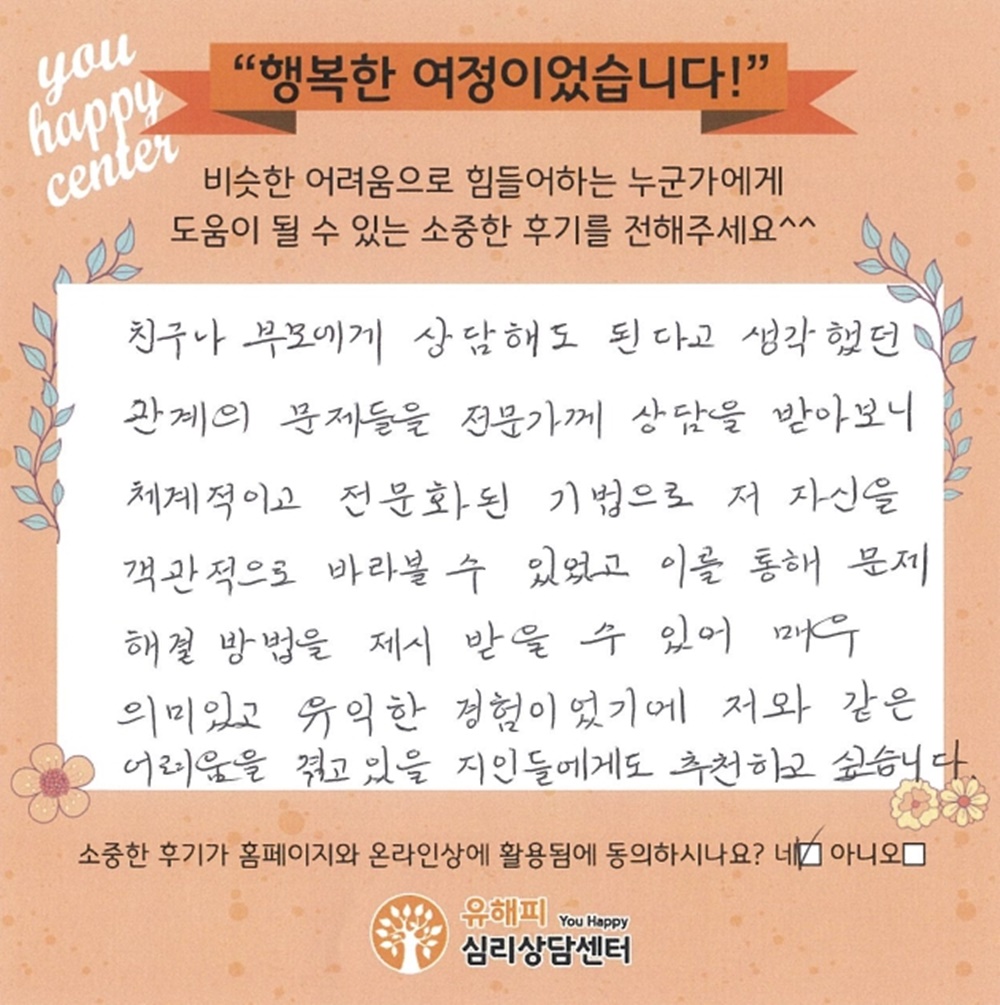 you
happy
center
“행복한 여정이었습니다!”
비슷한 어려움으로 힘들어하는 누군가에게
도움이 될 수 있는 소중한 후기를 전해주세요^^
친구나 부모에게 상담해도 된다고 생각했던
관계의 문제들을 전문가께 상담을 받아보니
체계적이고 전문화된 기법으로 저 자신을
객관적으로 바라볼 수 있었고 이를 통해 문제
해결 방법을 제시 받을 수 있어 매우
의미있고 유익한 경험이었기에 저와 같은
어려움을 겪고 있을 지인들에게도 추천하고 싶습니다.
소중한 후기가 홈페이지와 온라인상에 활용됨에 동의하시나요? 네☑ 아니오□
유해피 You Happy
심리상담센터